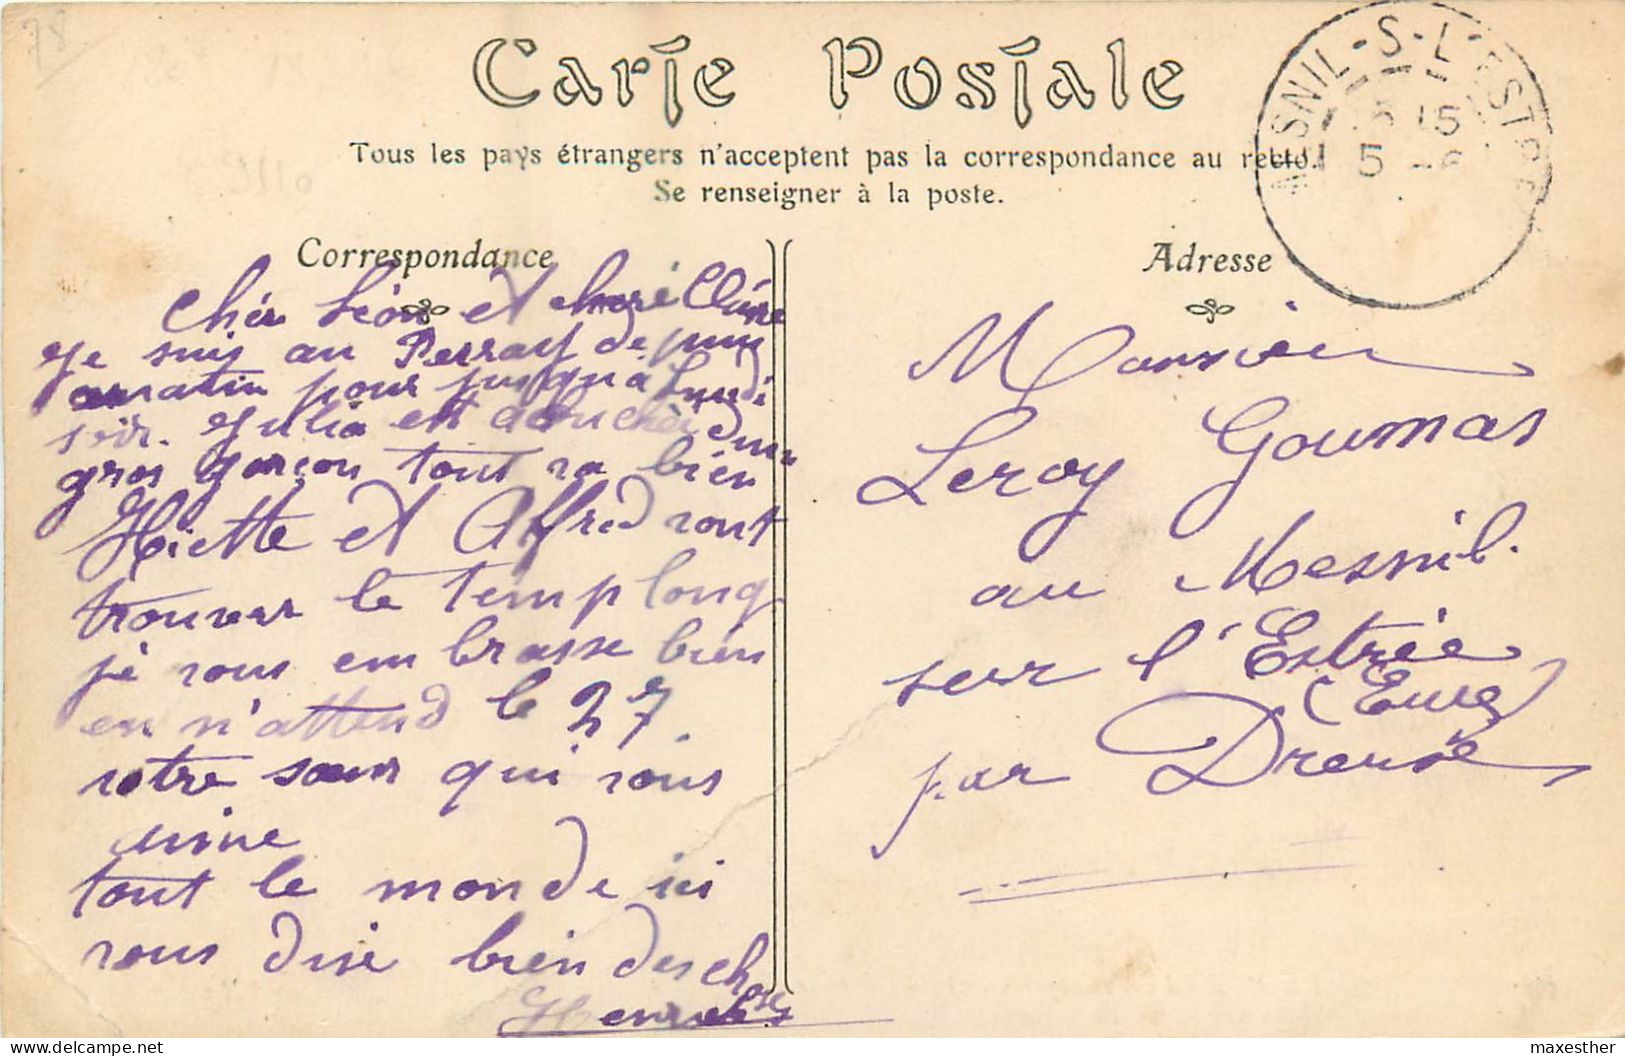 78
Carte Postale
Tous les pays étrangers n'acceptent pas la correspondance au recto.
Se renseigner à la poste.
MESNIL-S-L'ESTREE
15
5
Correspondance
Cher Léon et cheré Claire
je suis au Perray depuis
matin pour jusqua Lundi
soir. Julia est acouchée dun
gros garçon tout va bien
et Alfred vont
trouver le temp long
je vous embrasse bien
en n'attend le 27
votre sœur qui vous
aime
tout le monde ici
vous dise bien des choses
Adresse
Monsieur
Leroy Goumas
au Mesnil.
sur l'Estrée
(Eure)
par Dreuse
maxesther